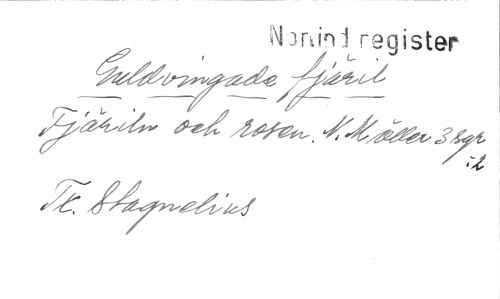 Norlind register
Guldvingade fjäril
Fjäriln och rosen. N. Möller 3 sgr
:2
Tx. Stagnelius